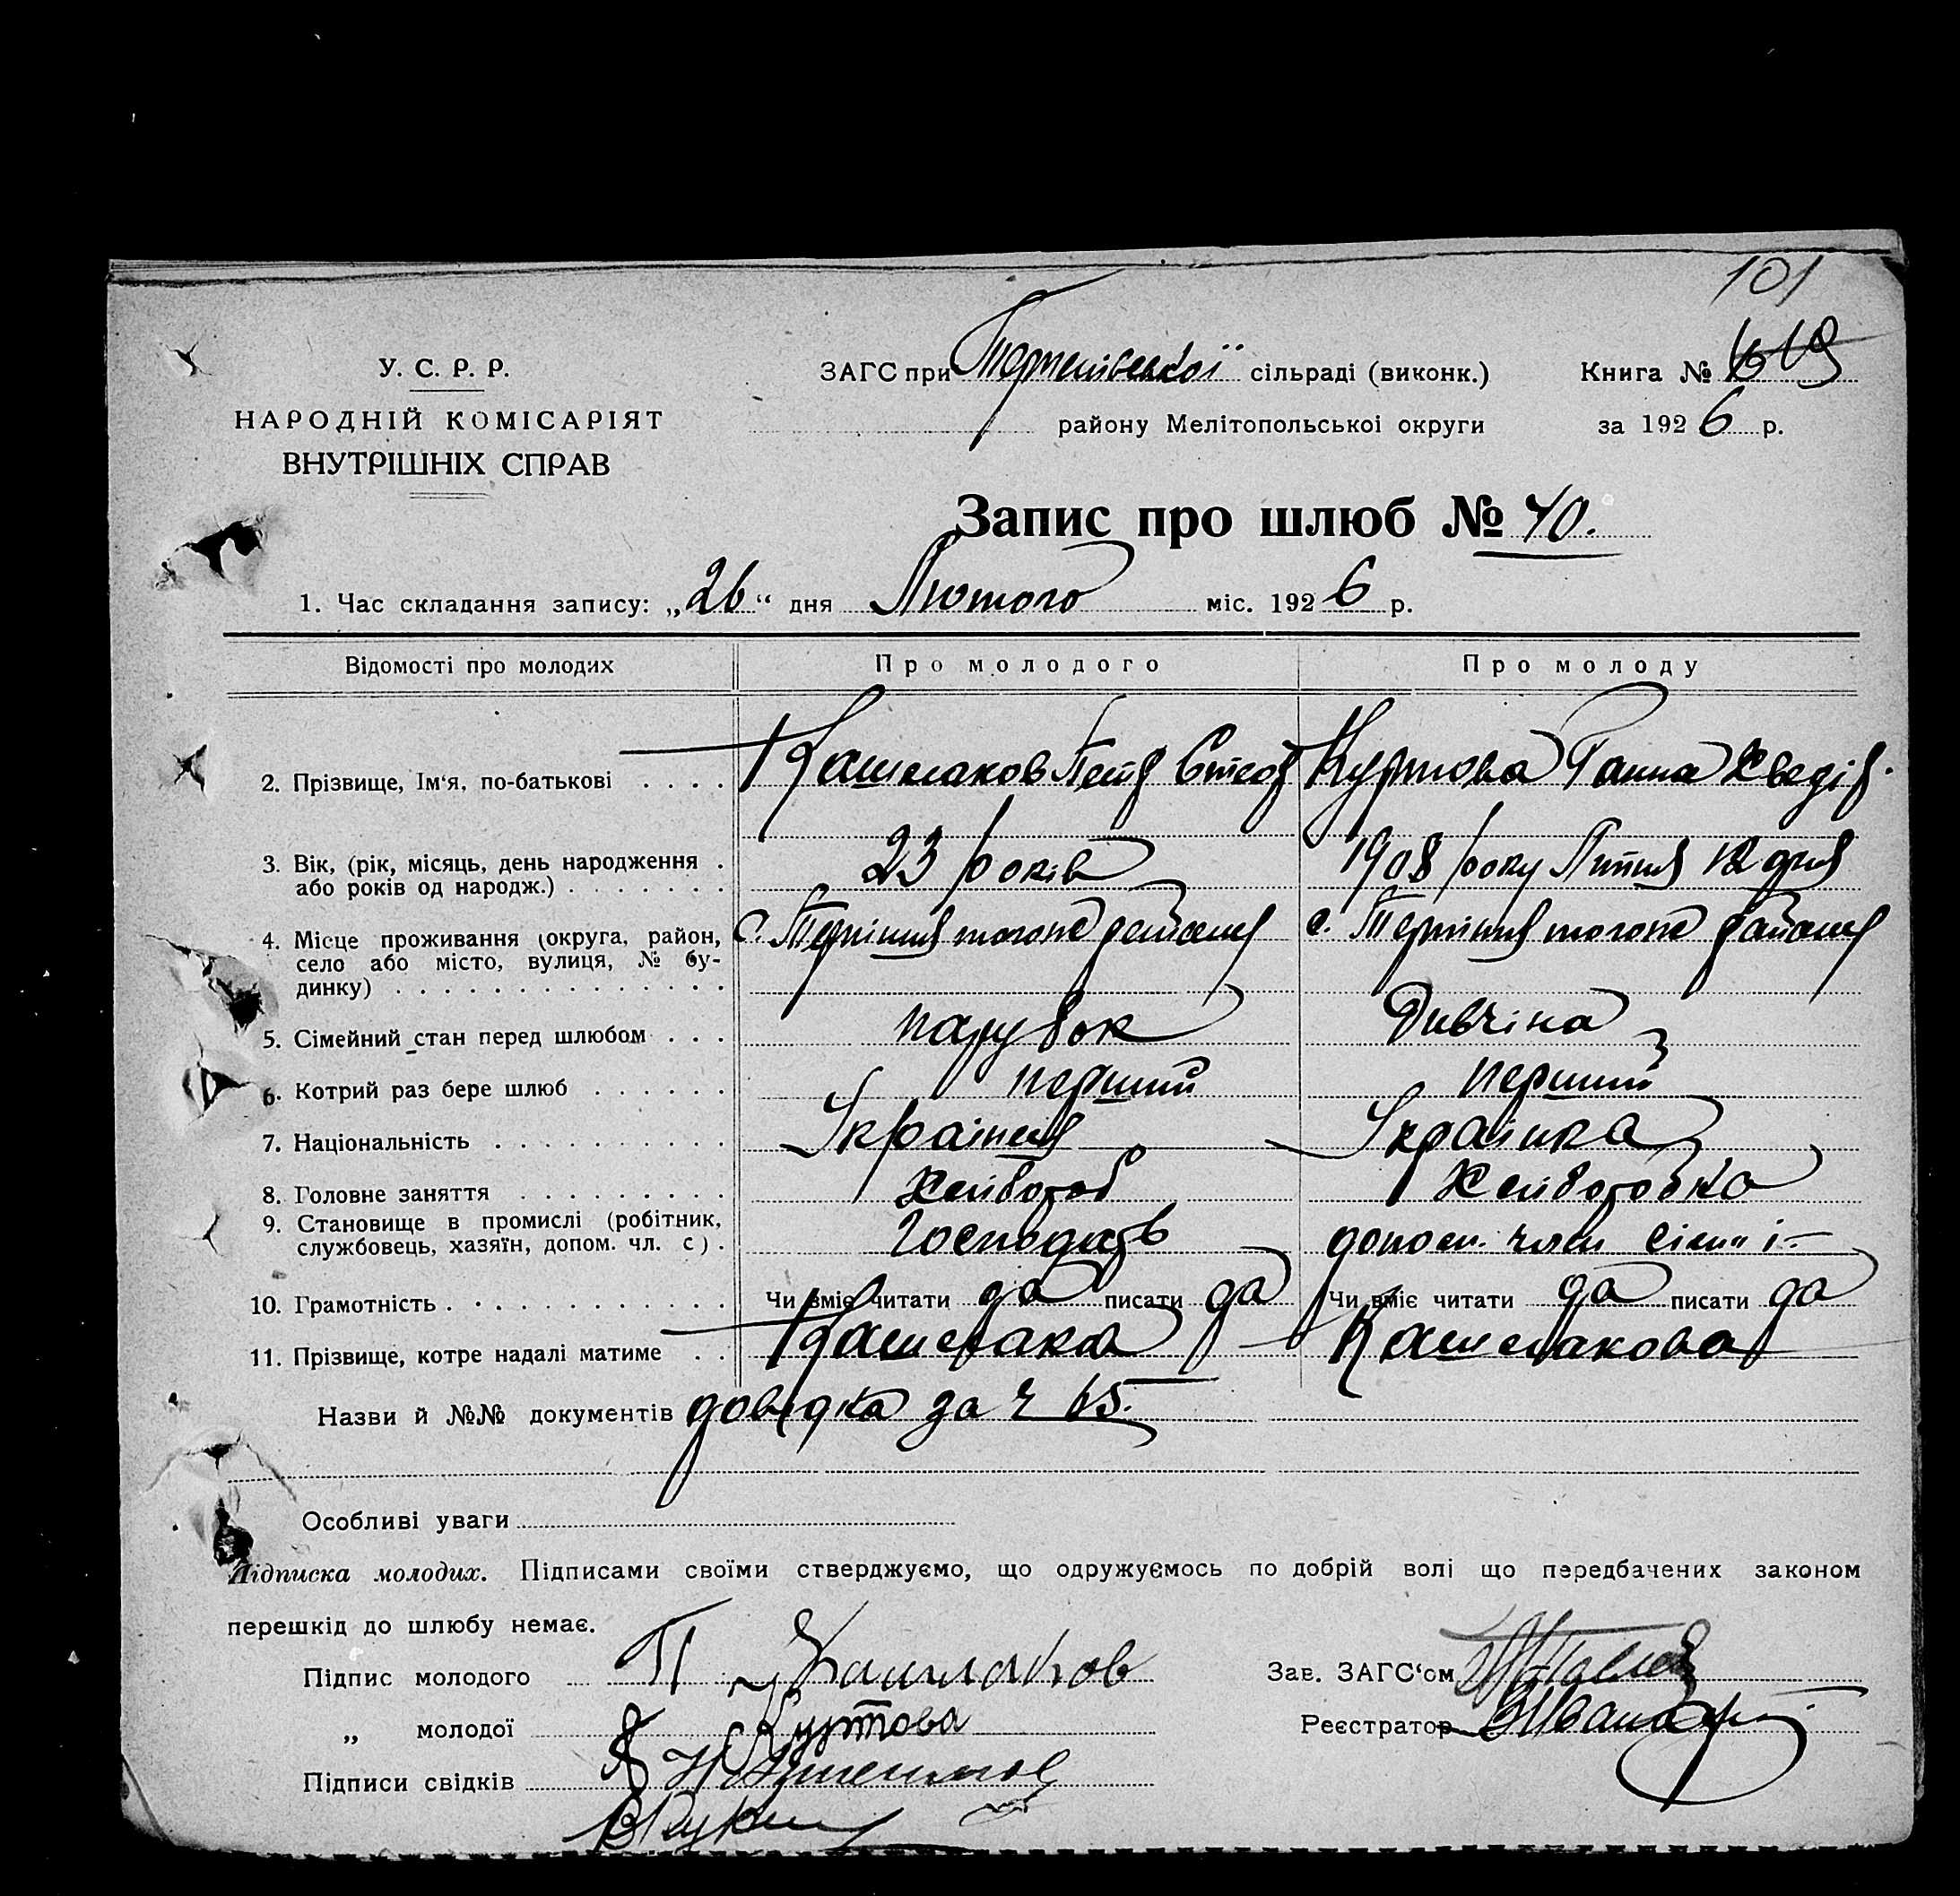 101
У. С. Р. Р.
НАРОДНІЙ КОМІСАРІЯТ
ВНУТРІШНІХ СПРАВ
ЗАГС при Терпеніівської сільраді (виконк.)
Книга №
району Мелітопольської округи
за 1926 р.
Запис про шлюб № 40.
1. Час складання запису: „26“ дня Лютого міс. 1926 р.
Відомості про молодих
Про молодого
Про молоду
2. Прізвище, Ім‘я, по-батькові . . . .
Кашлаков Петр Степ
Куртова Ганна Хведір.
3. Вік, (рік, місяць, день народження .
або років од народж.) . . . . . . .
23 років
1908 року Липня 12 дня
4. Місце проживання (округа, район,
село або місто, вулиця, № бу-
динку) . . . . . . . . . . . . . .
с. Терпіння того ж району
с. Терпіння того ж району
5. Сімейний стан перед шлюбом . . .
парубок
Дивчіна
6. Котрий раз бере шлюб . . . . . .
перший
перший
7. Національність . . . . . . . . . .
Українец
Українка
8. Головне заняття . . . . . . . . .
Хлибороб
Хлиборобка
9. Становище в промислі (робітник,
службовець, хазяїн, допом. чл. с) .
Господарь
допом. член сімьи
10. Грамотність . . . . . . . . . . . .
Чи вміє читати да писати да
Чи вміє читати да писати да
11. Прізвище, котре надалі матиме . .
Кашлаков
Кашлакова
Назви й №№ документів довідка за ч 65.
Особливі уваги
Підписка молодих. Підписами своїми стверджуємо, що одружуємось по добрій волі що передбачених законом
перешкід до шлюбу немає.
Підпис молодого П Кашлаков
Зав. ЗАГС‘ом
„ молодої Куртова
Реєстратор
Підписи свідків